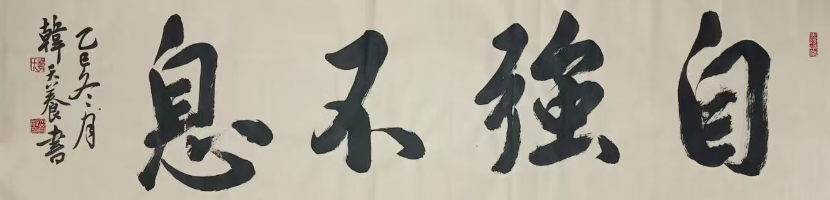 自強不息
乙巳冬月
韓天養書